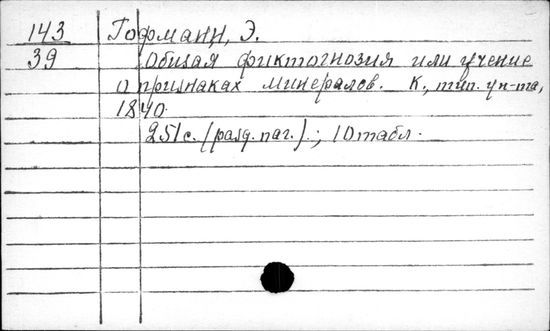 143 Гофманн, Э.
39 Общая фиктогнозия или учение
о признаках минералов. К., тип. ун-та,
1840.
251 с. (разд. паг.); 10 табл.